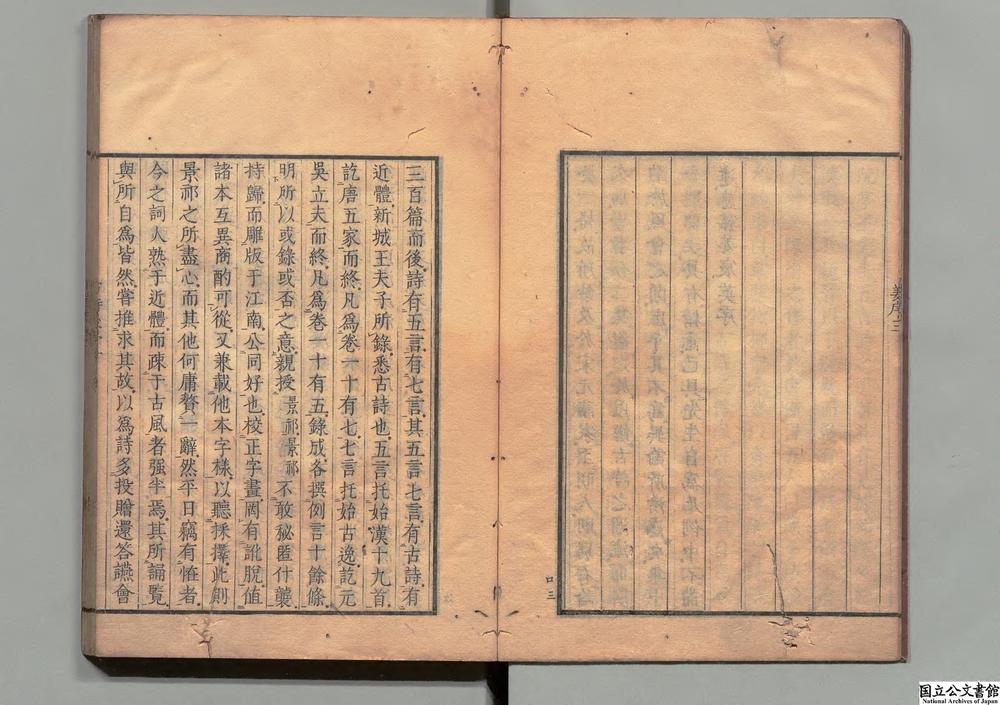 姜序三
口三
三百篇而後詩有五言有七言其五言七言有古詩有
近體新城王夫子所錄悉古詩也五言托始漢十九首
訖唐五家而終凡爲卷一十有七七言托始古逸訖元
吳立夫而終凡爲卷一十有五錄成各撰例言十餘條
明所以或錄或否之意親授景祁景祁不敢秘匿什襲
持歸而雕版于江南公同好也校正字畫罔有訛脫值
諸本互異商酌可從又兼載他本字樣以聽採擇此則
景祁之所盡心而其他何庸贅一辭然平日竊有恠者
今之詞人熟于近體而疎于古風者强半焉其所誦覽
與所自爲皆然嘗推求其故以爲詩多投贈還答讌會
国立公文書館
National Archives of Japan